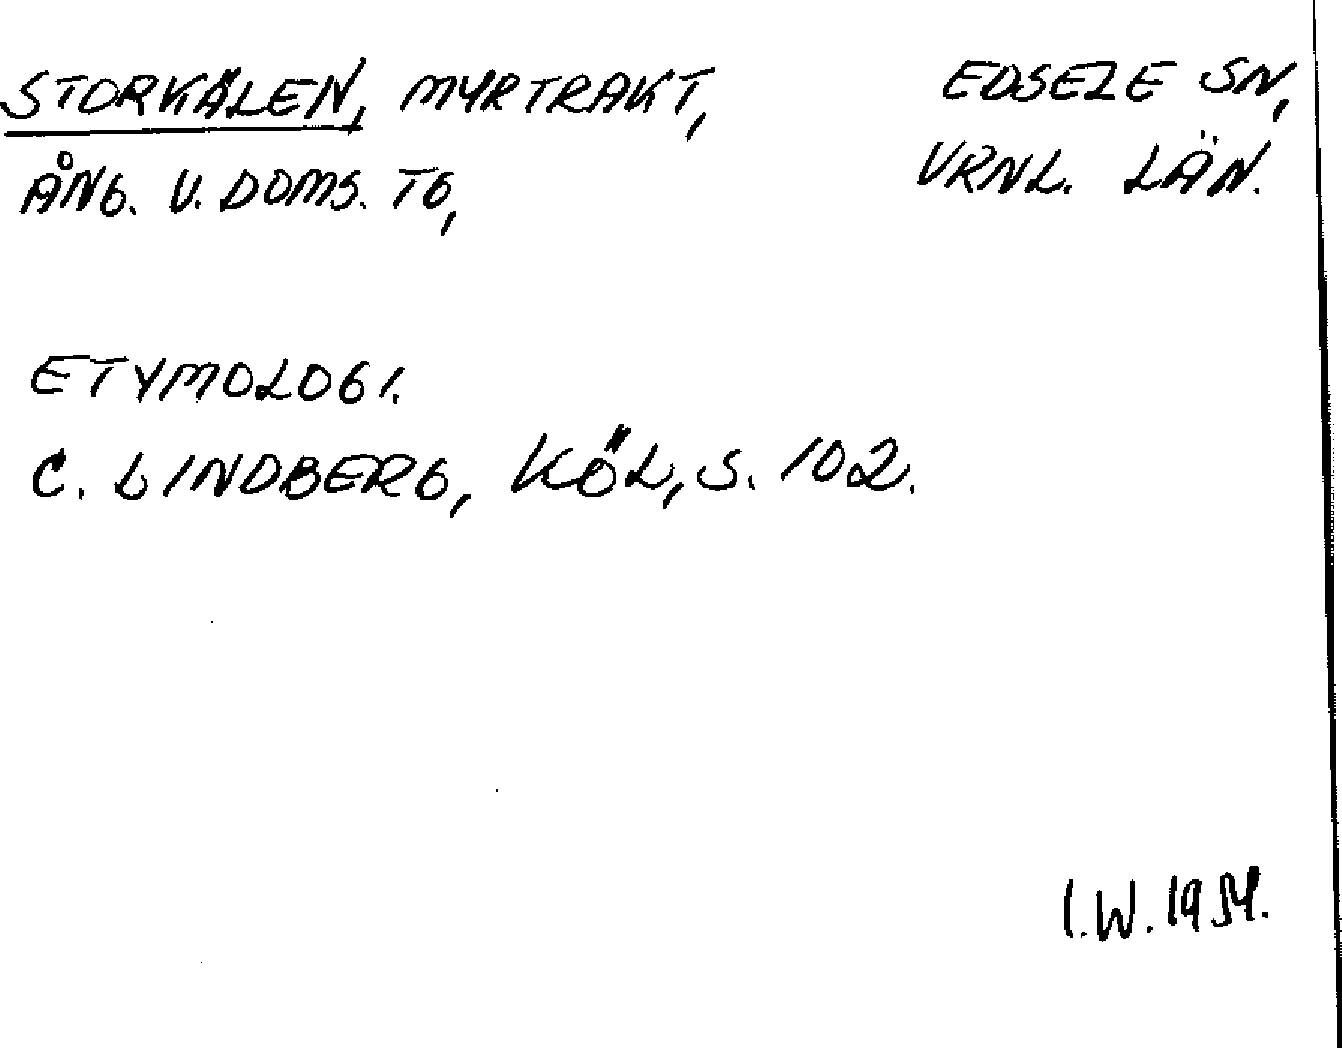 STORKÄLEN, MYRTRAKT, EDSELE SN,
ÅNG. V. DOMS. TG, VRNL. LÄN.
ETYMOLOGI.
C. LINDBERG, KÖL, S. 102.
I.W. 1954.